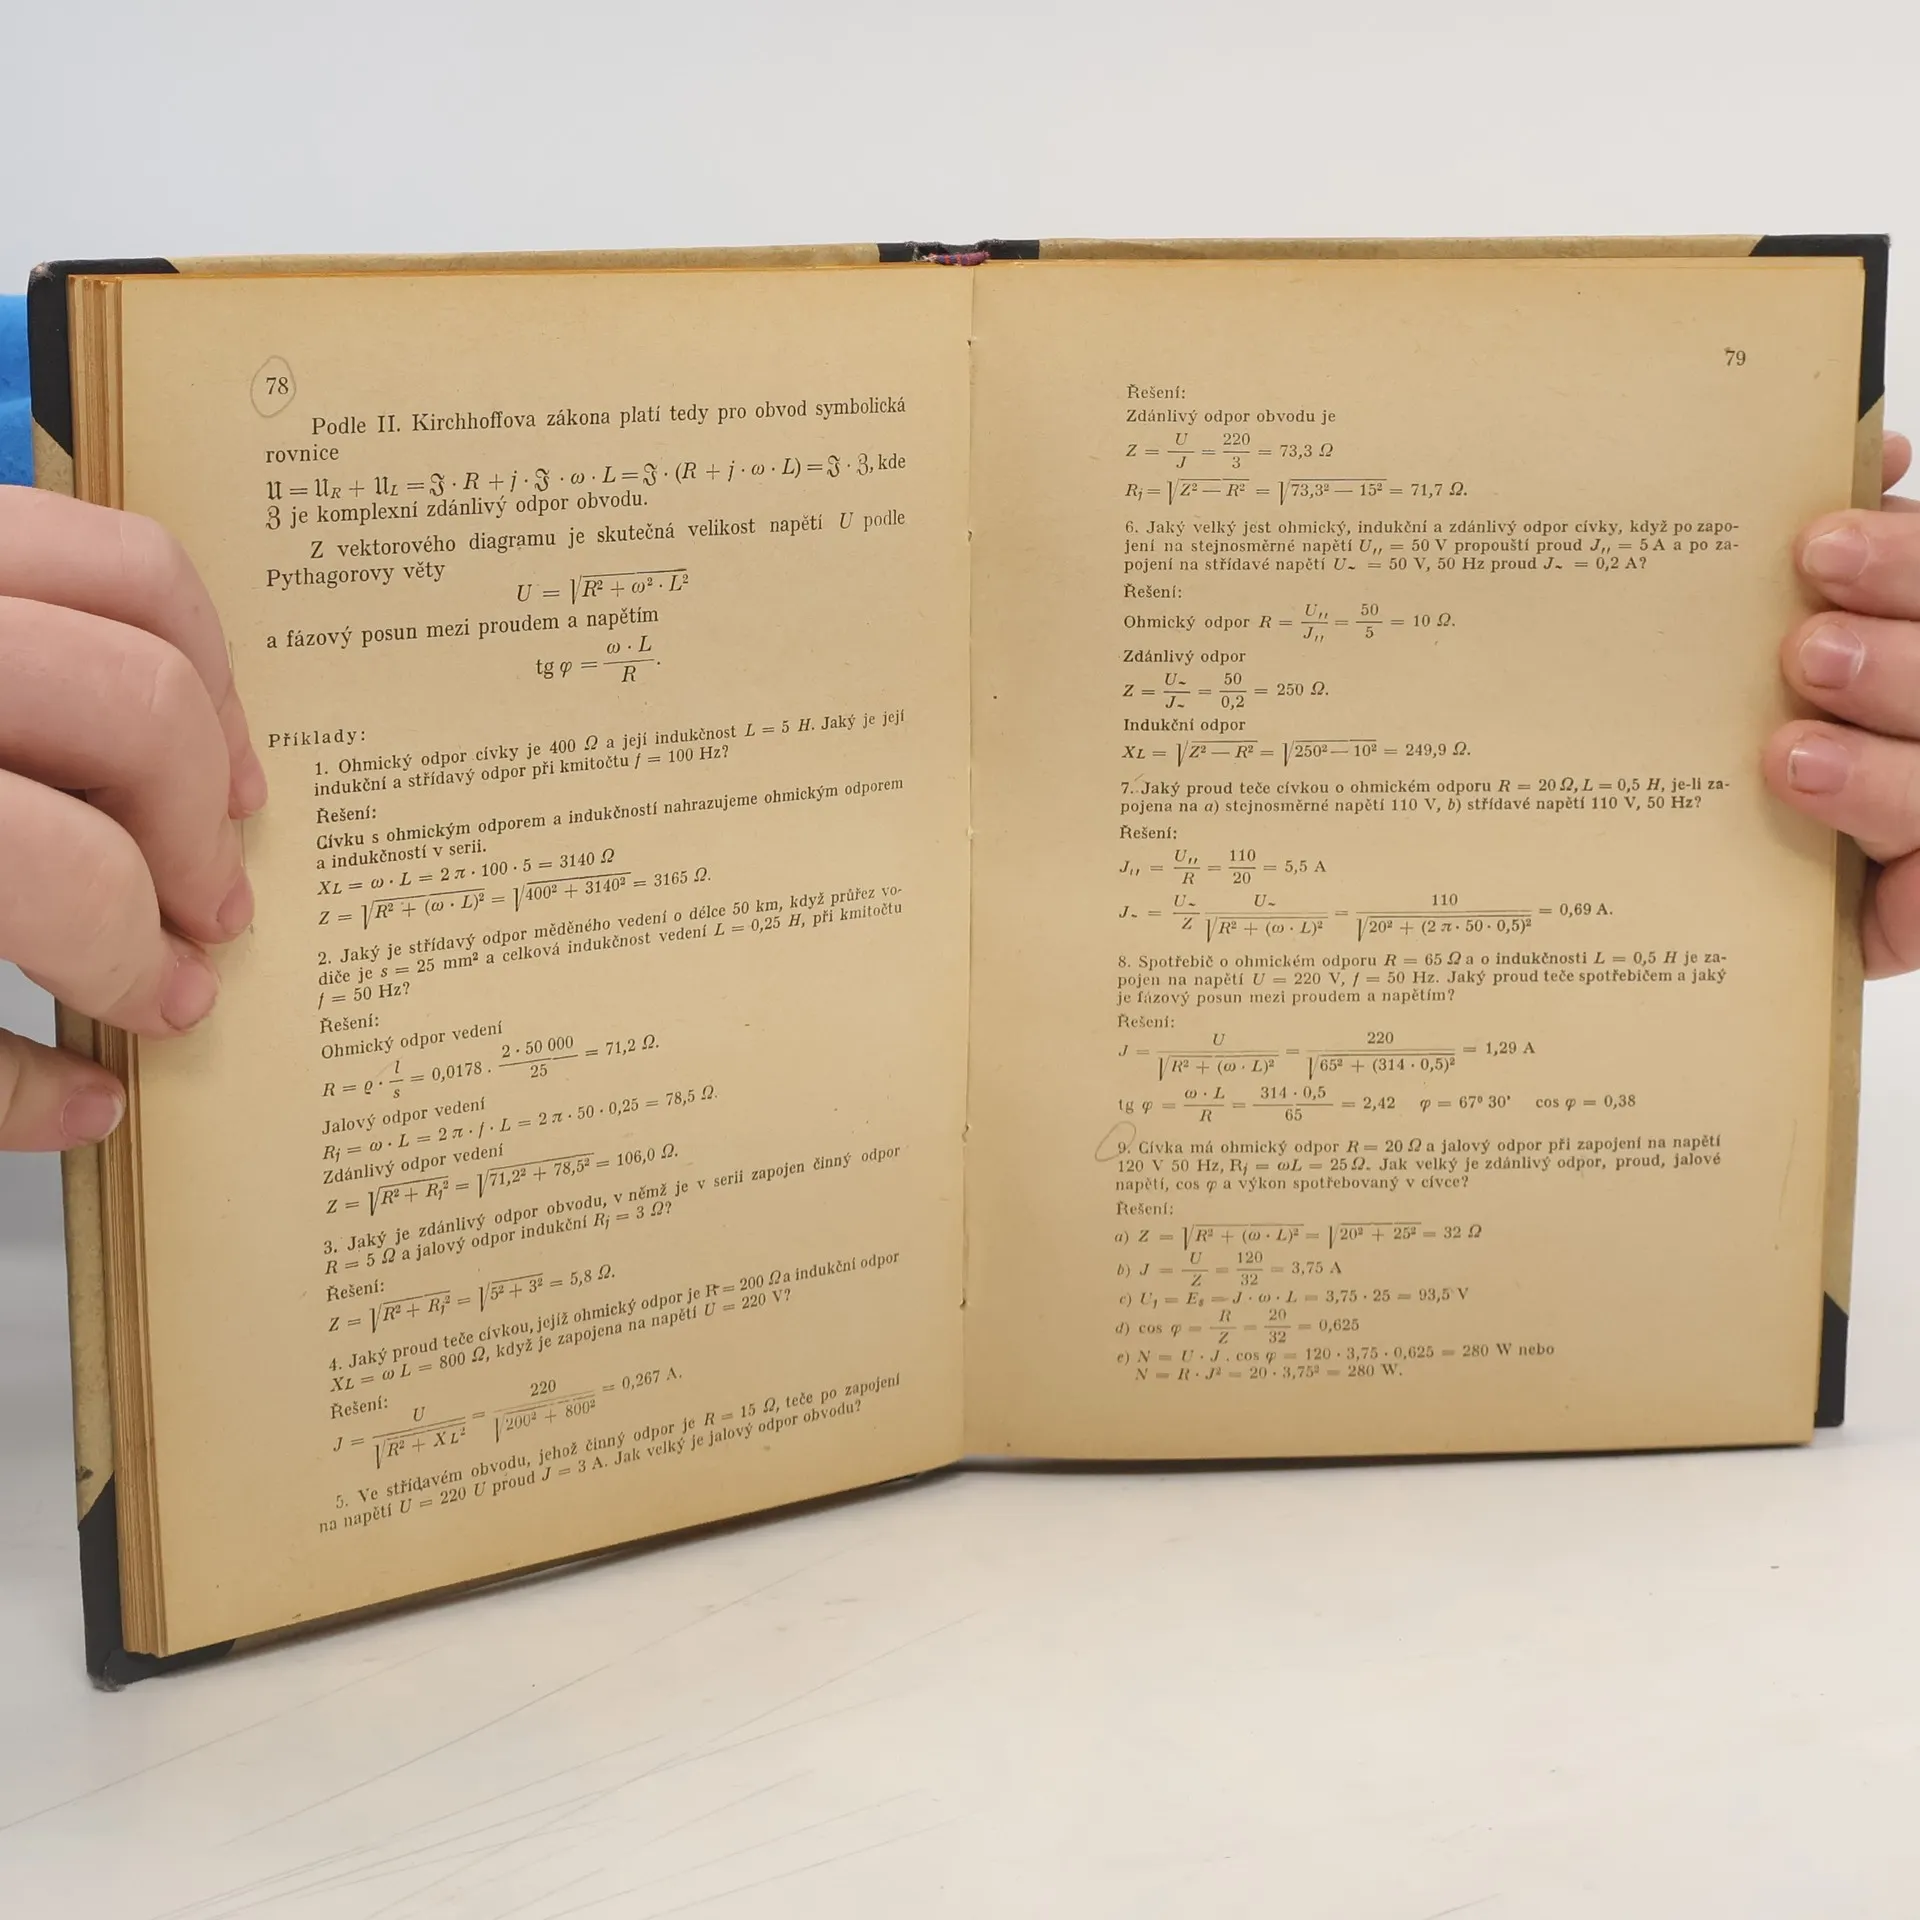 78
Podle II. Kirchhoffova zákona platí tedy pro obvod symbolická
rovnice
𝔘 = 𝔘_R + 𝔘_L = ℑ · R + j · ℑ · ω · L = ℑ · (R + j · ω · L) = ℑ · ℨ, kde
ℨ je komplexní zdánlivý odpor obvodu.
Z vektorového diagramu je skutečná velikost napětí U podle
Pythagorovy věty
U = √(R² + ω² · L²)
a fázový posun mezi proudem a napětím
tg φ = ω · L / R.
Příklady:
1. Ohmický odpor cívky je 400 Ω a její indukčnost L = 5 H. Jaký je její
indukční a střídavý odpor při kmitočtu f = 100 Hz?
Řešení:
Cívku s ohmickým odporem a indukčností nahrazujeme ohmickým odporem
a indukčností v serii.
X_L = ω · L = 2 π · 100 · 5 = 3140 Ω
Z = √(R² + (ω · L)²) = √(400² + 3140²) = 3165 Ω.
2. Jaký je střídavý odpor měděného vedení o délce 50 km, když průřez vo-
diče je s = 25 mm² a celková indukčnost vedení L = 0,25 H, při kmitočtu
f = 50 Hz?
Řešení:
Ohmický odpor vedení
R = ϱ · l / s = 0,0178 . 2 · 50 000 / 25 = 71,2 Ω.
Jalový odpor vedení
Rj = ω · L = 2 π · f · L = 2 π · 50 · 0,25 = 78,5 Ω.
Zdánlivý odpor vedení
Z = √(R² + Rj²) = √(71,2² + 78,5²) = 106,0 Ω.
3. Jaký je zdánlivý odpor obvodu, v němž je v serii zapojen činný odpor
R = 5 Ω a jalový odpor indukční Rj = 3 Ω?
Řešení:
Z = √(R² + Rj²) = √(5² + 3²) = 5,8 Ω.
4. Jaký proud teče cívkou, jejíž ohmický odpor je R = 200 Ω a indukční odpor
X_L = ω L = 800 Ω, když je zapojena na napětí U = 220 V?
Řešení:
J = U / √(R² + X_L²) = 220 / √(200² + 800²) = 0,267 A.
5. Ve střídavém obvodu, jehož činný odpor je R = 15 Ω, teče po zapojení
na napětí U = 220 U proud J = 3 A. Jak velký je jalový odpor obvodu?
79
Řešení:
Zdánlivý odpor obvodu je
Z = U / J = 220 / 3 = 73,3 Ω
Rj = √(Z² — R²) = √(73,3² — 15²) = 71,7 Ω.
6. Jaký velký jest ohmický, indukční a zdánlivý odpor cívky, když po zapo-
jení na stejnosměrné napětí U,, = 50 V propouští proud J,, = 5 A a po za-
pojení na střídavé napětí U~ = 50 V, 50 Hz proud J~ = 0,2 A?
Řešení:
Ohmický odpor R = U,, / J,, = 50 / 5 = 10 Ω.
Zdánlivý odpor
Z = U~ / J~ = 50 / 0,2 = 250 Ω.
Indukční odpor
X_L = √(Z² — R²) = √(250² — 10²) = 249,9 Ω.
7. Jaký proud teče cívkou o ohmickém odporu R = 20 Ω, L = 0,5 H, je-li za-
pojena na a) stejnosměrné napětí 110 V, b) střídavé napětí 110 V, 50 Hz?
Řešení:
J,, = U,, / R = 110 / 20 = 5,5 A
J~ = U~ / Z U~ / √(R² + (ω · L)²) = 110 / √(20² + (2 π · 50 · 0,5)²) = 0,69 A.
8. Spotřebič o ohmickém odporu R = 65 Ω a o indukčnosti L = 0,5 H je za-
pojen na napětí U = 220 V, f = 50 Hz. Jaký proud teče spotřebičem a jaký
je fázový posun mezi proudem a napětím?
Řešení:
J = U / √(R² + (ω · L)²) = 220 / √(65² + (314 · 0,5)²) = 1,29 A
tg φ = ω · L / R = 314 · 0,5 / 65 = 2,42 φ = 67° 30' cos φ = 0,38
9. Cívka má ohmický odpor R = 20 Ω a jalový odpor při zapojení na napětí
120 V 50 Hz, Rj = ωL = 25 Ω. Jak velký je zdánlivý odpor, proud, jalové
napětí, cos φ a výkon spotřebovaný v cívce?
Řešení:
a) Z = √(R² + (ω · L)²) = √(20² + 25²) = 32 Ω
b) J = U / Z = 120 / 32 = 3,75 A
c) Uj = Es = J · ω · L = 3,75 · 25 = 93,5 V
d) cos φ = R / Z = 20 / 32 = 0,625
e) N = U · J . cos φ = 120 · 3,75 · 0,625 = 280 W nebo
N = R · J² = 20 · 3,75² = 280 W.